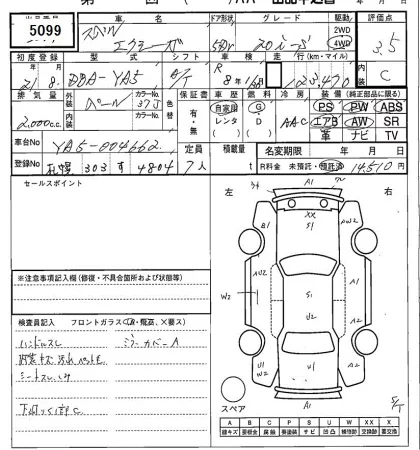 5099
車名
ドア形状
グレード
駆動
評価点
スバル
エクシーガ
5D
2.0i-S
2WD
4WD
3.5
初度登録
型式
シフト
車検
走行(km・マイル)
内装
21年8月
DBA-YA5
A/T
R8年8月
123,470
C
排気量
外装
カラーNo.
色替
保証書
車歴
燃料
冷房
装備(純正部品に限る)
2,000c.c.
パール
37J
有・無
自家用
レンタ
G
D
AAC
PS PW ABS
エアB AW SR
革 ナビ TV
内装
カラーNo.
車台No
YA5-004662
定員
積載量
名変期限
年 月 日
登録No
303 す 4804
7人
t
R料金 未預託・預託済 14,510円
セールスポイント
左
右
A1
XX
S1
B1
A1
AU2
W2
S1
AU2
A2
U1
U2
W2
U1
A1
S/T
スペア
※注意事項記入欄(修復・不具合箇所および状態等)
検査員記入 フロントガラス(A・飛石、×要ス)
ハンドルスレ
ミラーカバーA
内装キズ 汚れ ペット毛
シートスレ しみ
下回りS1部C
A B C P S U W X XX
線キズ 要板金 腐蝕 要塗装 サビ 凹凸 補修跡 交換跡 要交換